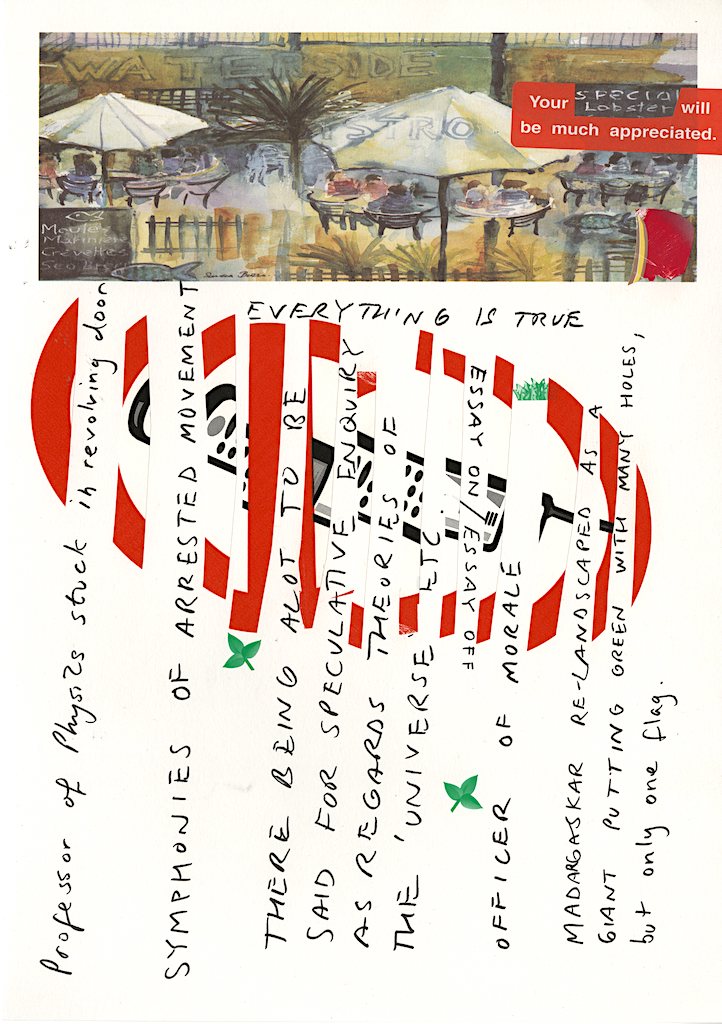 WATERSIDE
BISTRO
Your SPECIAL Lobster will
be much appreciated.
Moules
Marinière
Crevettes
EVERYTHING IS TRUE
Professor of Physizs stuck in revolving door
SYMPHONIES OF ARRESTED MOVEMENT
THERE BEING ALOT TO BE
SAID FOR SPECULATIVE ENQUIRY
AS REGARDS THEORIES OF
THE 'UNIVERSE' ETC
ESSAY ON/ESSAY OFF
OFFICER OF MORALE
MADARGASKAR RE-LANDSCAPED AS A
GIANT PUTTING GREEN WITH MANY HOLES,
but only one flag.